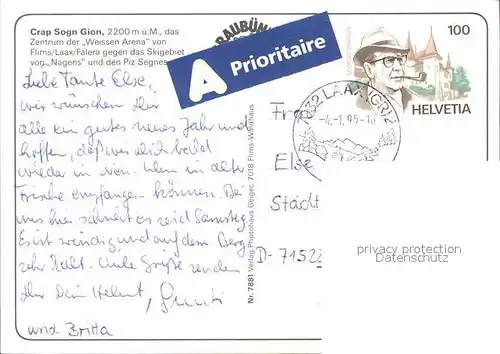 Crap Sogn Gion, 2200 m ü.M., das
Zentrum der „Weissen Arena" von
Flims/Laax/Falera gegen das Skigebiet
von „Nagens" und den Piz Segnes
GRAUBÜN
A Prioritaire
100
HELVETIA
7032 LAAX (GR)
-4.-1.95-1
Liebe Tante Else,
wir wünschen Dir
alle ein gutes neues Jahr und
hoffen, daß wir dich bald
wieder in alter
Frische empfangen können. Bei
uns hier schneit es seid Samstag.
Es ist windig und auf dem Berg
sehr kalt. Viele Grüße senden
Dir Dein Helmut,
und Britta
Nr. 7881 Verlag Photohaus Geiger, 7018 Flims-Waldhaus
Frau
Else
Städt
D-71522
privacy protection
Datenschutz